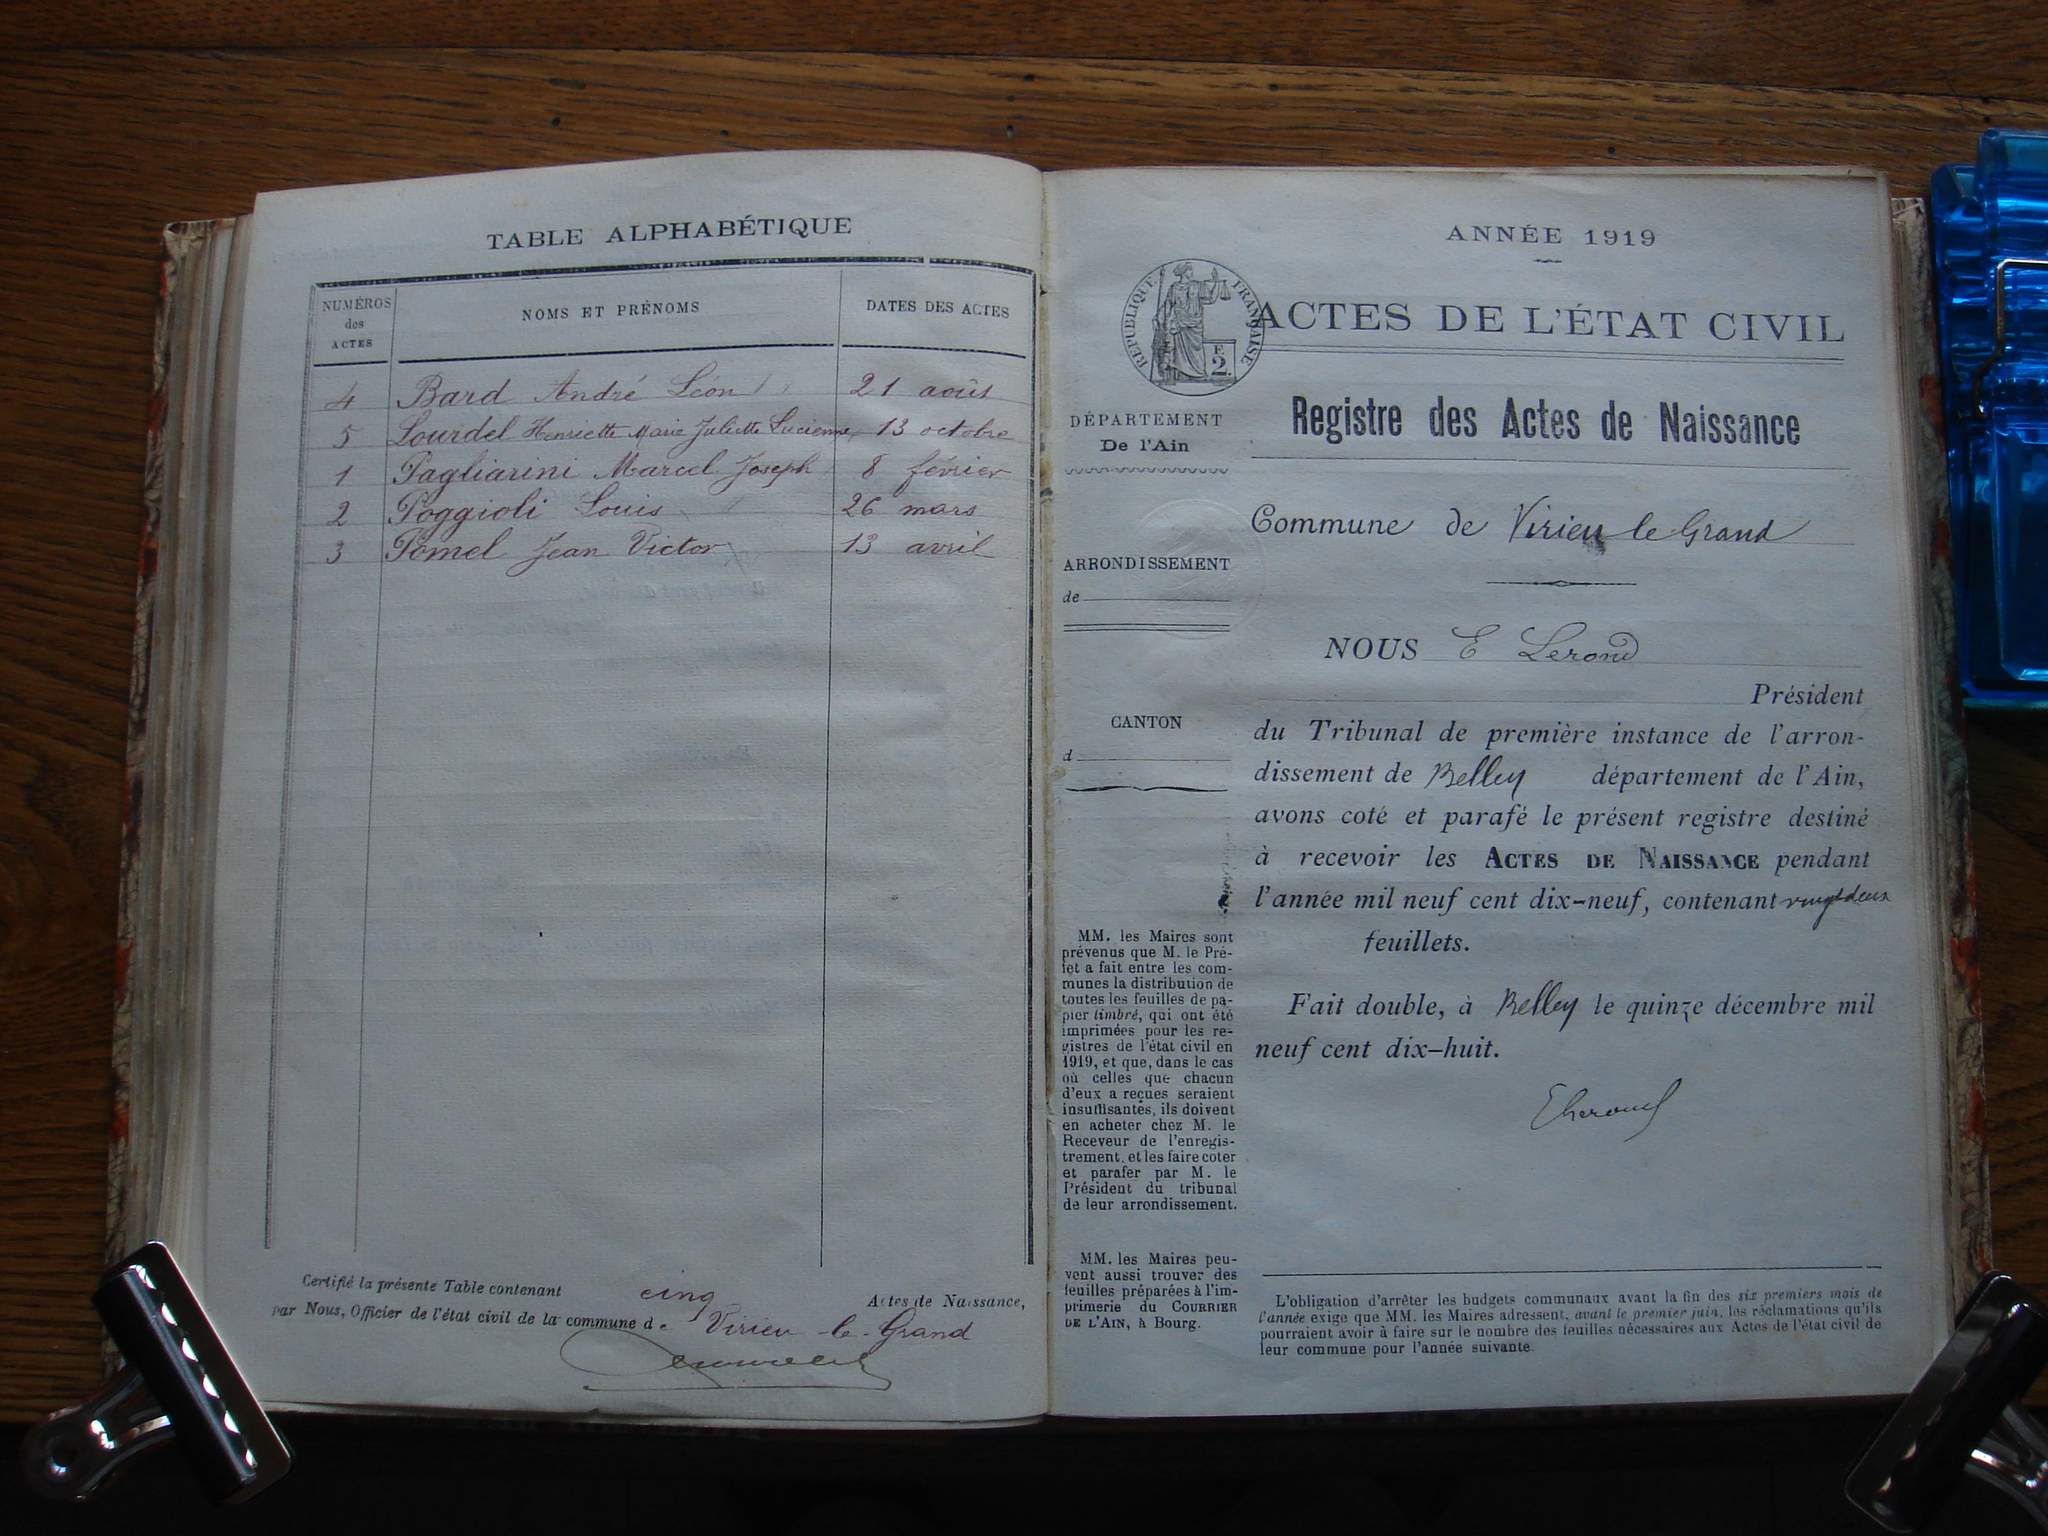 TABLE ALPHABÉTIQUE
NUMÉROS
des
ACTES
NOMS ET PRÉNOMS
DATES DES ACTES
4 Bard André Léon 21 août
5 Lourdel Henriette Marie Juliette Lucienne 13 octobre
1 Pagliarini Marcel Joseph 8 février
2 Poggioli Louis 26 mars
3 Pomel Jean Victor 13 avril
Certifié la présente Table contenant cinq Actes de Naissance,
par Nous, Officier de l'état civil de la commune de Virieu-le-Grand
ANNÉE 1919
RÉPUBLIQUE FRANÇAISE
F.
2.
ACTES DE L'ÉTAT CIVIL
Registre des Actes de Naissance
DÉPARTEMENT
De l'Ain
Commune de Virieu le Grand
ARRONDISSEMENT
de
NOUS E Lerond
Président
CANTON
d
du Tribunal de première instance de l'arron-
dissement de Belley département de l'Ain,
avons coté et parafé le présent registre destiné
à recevoir les ACTES DE NAISSANCE pendant
l'année mil neuf cent dix-neuf, contenant vingt deux
feuillets.
Fait double, à Belley le quinze décembre mil
neuf cent dix-huit.
MM. les Maires sont
prévenus que M. le Pré-
fet a fait entre les com-
munes la distribution de
toutes les feuilles de pa-
pier timbré, qui ont été
imprimées pour les re-
gistres de l'état civil en
1919, et que, dans le cas
où celles que chacun
d'eux a reçues seraient
insuffisantes, ils doivent
en acheter chez M. le
Receveur de l'enregis-
trement, et les faire coter
et parafer par M. le
Président du tribunal
de leur arrondissement.
MM. les Maires peu-
vent aussi trouver des
feuilles préparées à l'im-
primerie du COURRIER
DE L'AIN, à Bourg.
L'obligation d'arrêter les budgets communaux avant la fin des six premiers mois de
l'année exige que MM. les Maires adressent, avant le premier juin, les réclamations qu'ils
pourraient avoir à faire sur le nombre des feuilles nécessaires aux Actes de l'état civil de
leur commune pour l'année suivante.